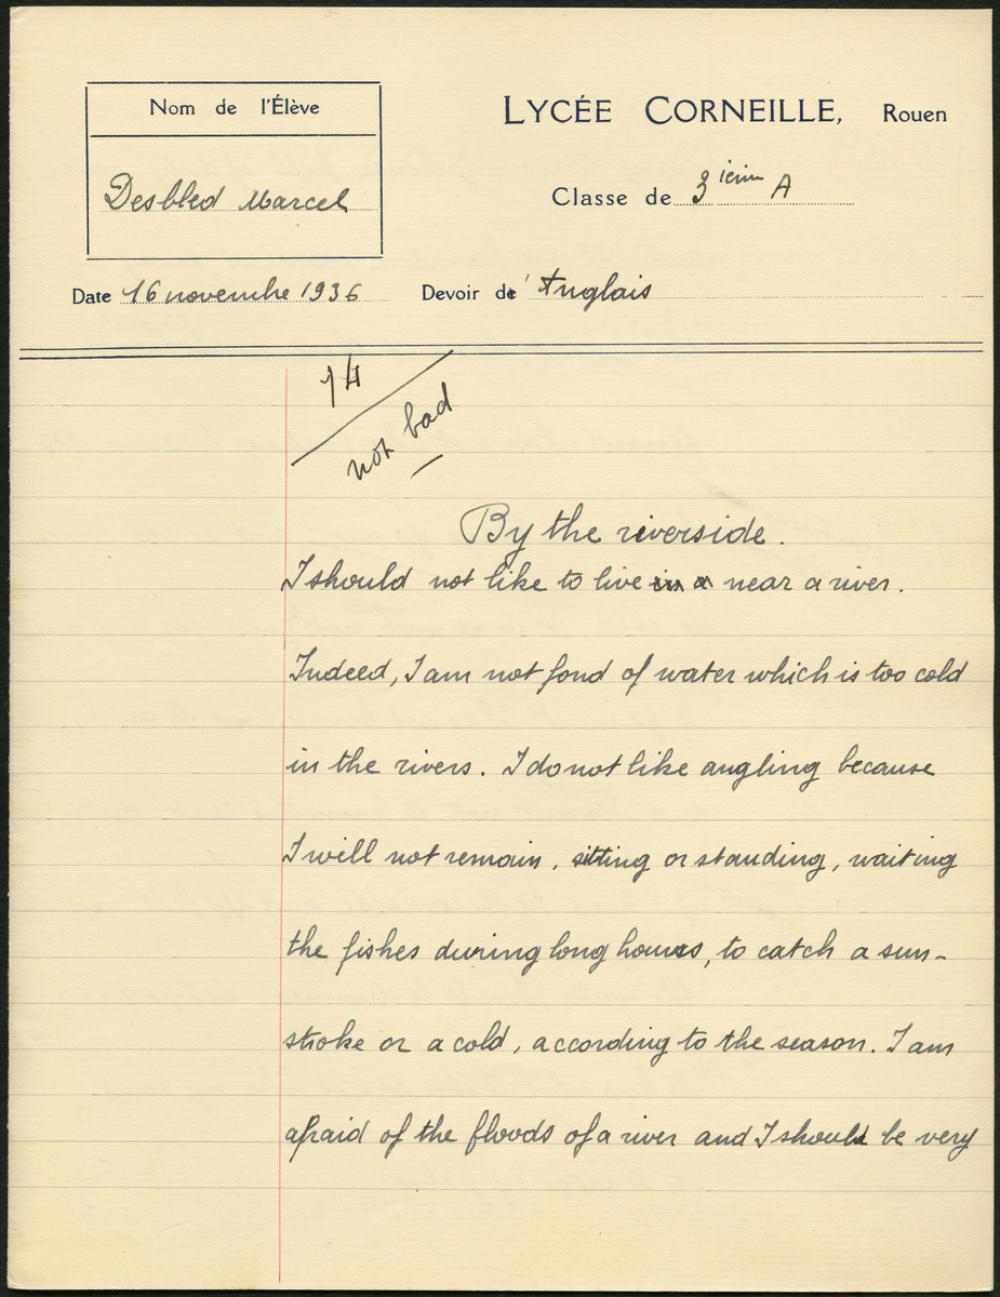 Nom de l'Élève
LYCÉE CORNEILLE, Rouen
Desbled Marcel
Classe de 3ième A
Date 16 novembre 1936
Devoir de l'Anglais
14
not bad
By the riverside.
I should not like to live in a near a river.
Indeed, I am not fond of water which is too cold
in the rivers. I do not like angling because
I will not remain, sitting or standing, waiting
the fishes during long hours, to catch a sun-
stroke or a cold, according to the season. I am
afraid of the floods of a river and I should be very